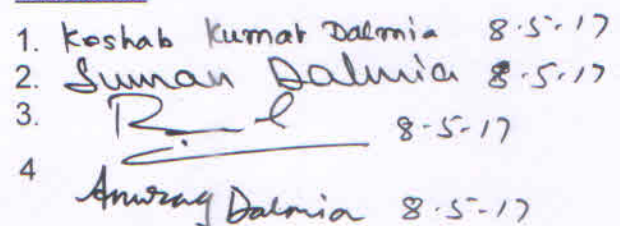 1. Keshab Kumar Dalmia 8.5.17
2. Suman Dalmia 8.5.17
3. 8-5-17
4 Anurag Dalmia 8.5-17